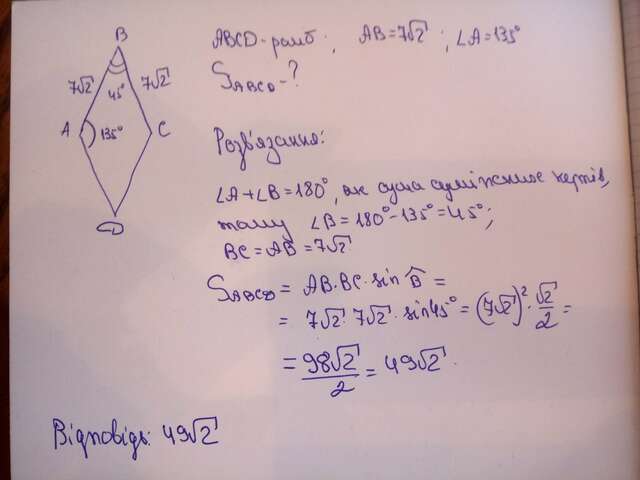 B
7√2 7√2
45°
A 135° C
D
ABCD-ромб; AB=7√2; ∠A=135°
S ABCD -?
Розв'язання:
∠A+∠B=180°, як сума суміжних кутів,
тому ∠B=180°-135°=45°;
BC=AB=7√2
S ABCD = AB·BC·sin B̂ =
= 7√2·7√2·sin45°=(7√2)²·√2/2=
= 98√2/2 = 49√2.
Відповідь: 49√2